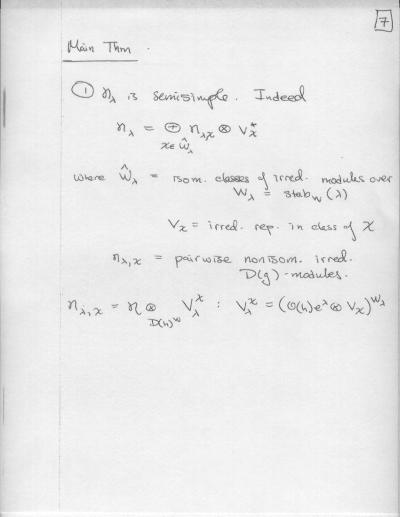 7
Main Thm.
① 𝔑_λ is semisimple. Indeed
𝔑_λ = ⊕_{χ ∈ Ŵ_λ} 𝔑_{λ,χ} ⊗ V_χ^*
where Ŵ_λ = isom. classes of irred. modules over
W_λ = stab_W(λ)
V_χ = irred. rep. in class of χ
𝔑_{λ,χ} = pairwise nonisom. irred.
D(g)-modules.
𝔑_{λ,χ} = 𝔑 ⊗_{D(h)^W} V_λ^χ : V_λ^χ = (O(h)e^λ ⊗ V_χ)^{W_λ}